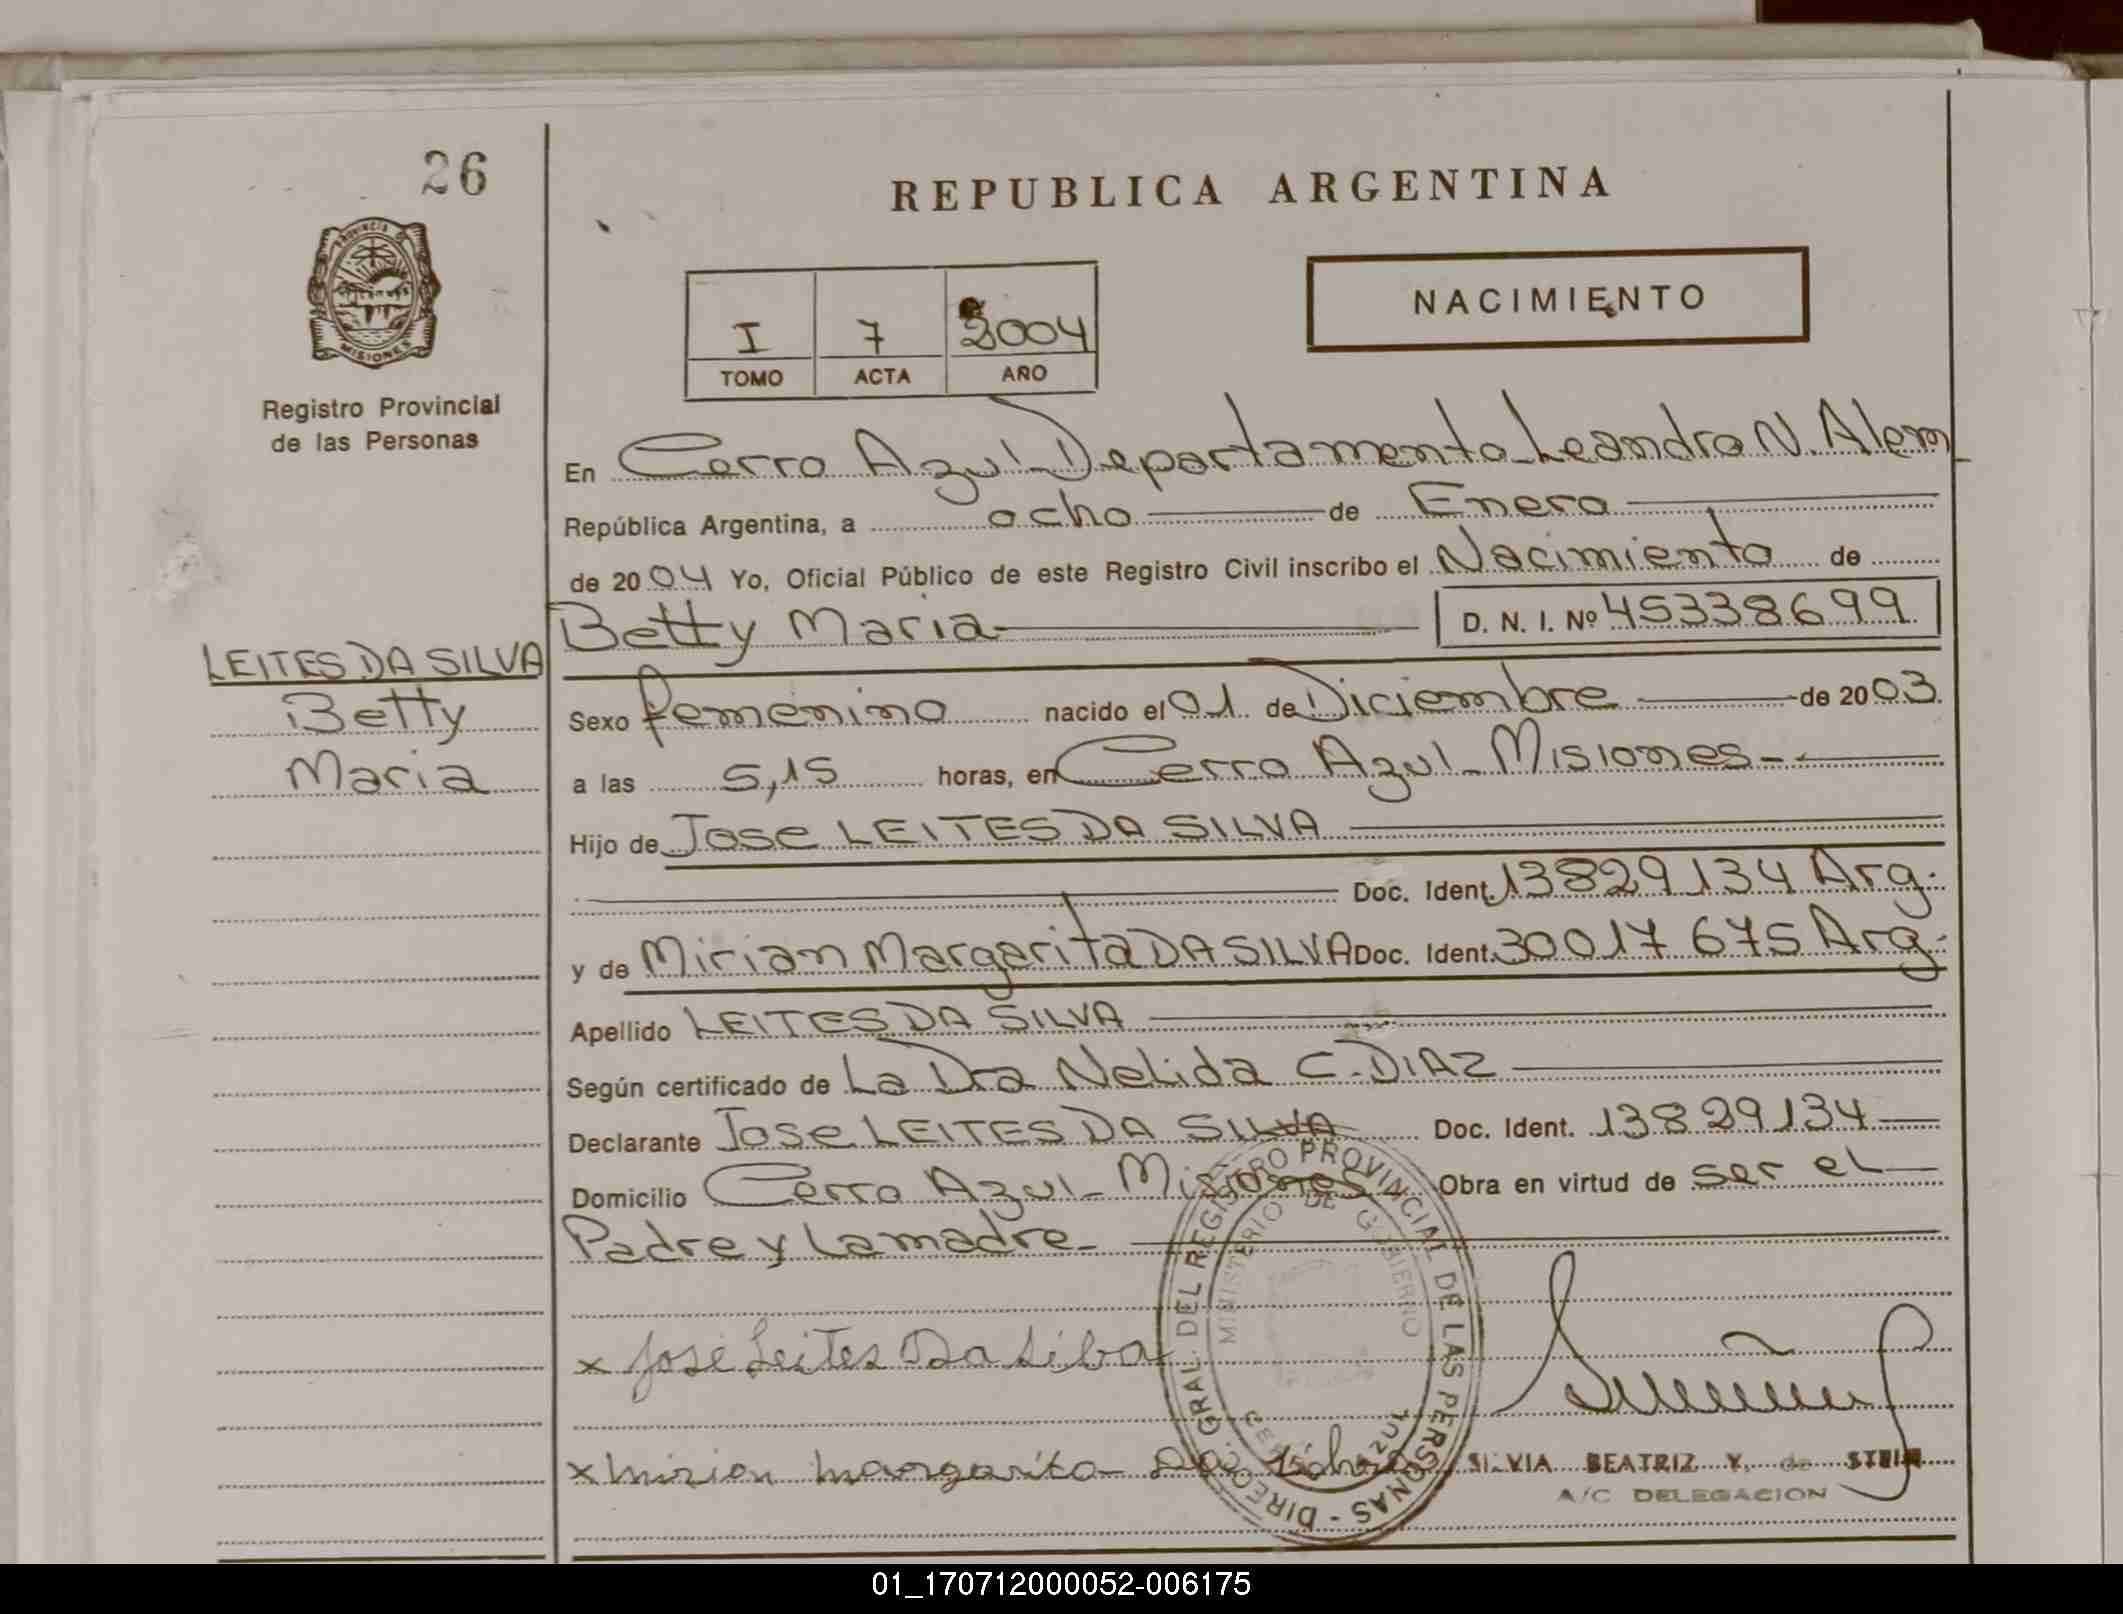 26
REPUBLICA ARGENTINA
PROVINCIA DE
MISIONES
Registro Provincial
de las Personas
NACIMIENTO
I 7 2004
TOMO ACTA AÑO
En Cerro Azul-Departamento-Leandro N. Alem-
República Argentina, a ocho de Enero
de 2004 Yo, Oficial Público de este Registro Civil inscribo el Nacimiento de
Betty Maria- D. N. I. Nº 45338699
LEITES DA SILVA
Betty
Maria
Sexo femenino nacido el 01 de Diciembre de 2003
a las 5,15 horas, en Cerro Azul-Misiones-
Hijo de Jose LEITES DA SILVA
Doc. Ident. 13829134 Arg.
y de Mirian Margarita DA SILVA Doc. Ident. 30017675 Arg.
Apellido LEITES DA SILVA
Según certificado de La Dra Nelida C. DIAZ
Declarante Jose LEITES DA SILVA Doc. Ident. 13829134
Domicilio Cerro Azul-Misiones Obra en virtud de ser el
Padre y La madre-
DIREC. GRAL. DEL REGISTRO PROVINCIAL DE LAS PERSONAS -
MINISTERIO DE GOBIERNO
CERRO AZUL
x José Leites Da Silba
x mirion margarita
SILVIA BEATRIZ Y. de STEIN
A/C DELEGACION
01_170712000052-006175